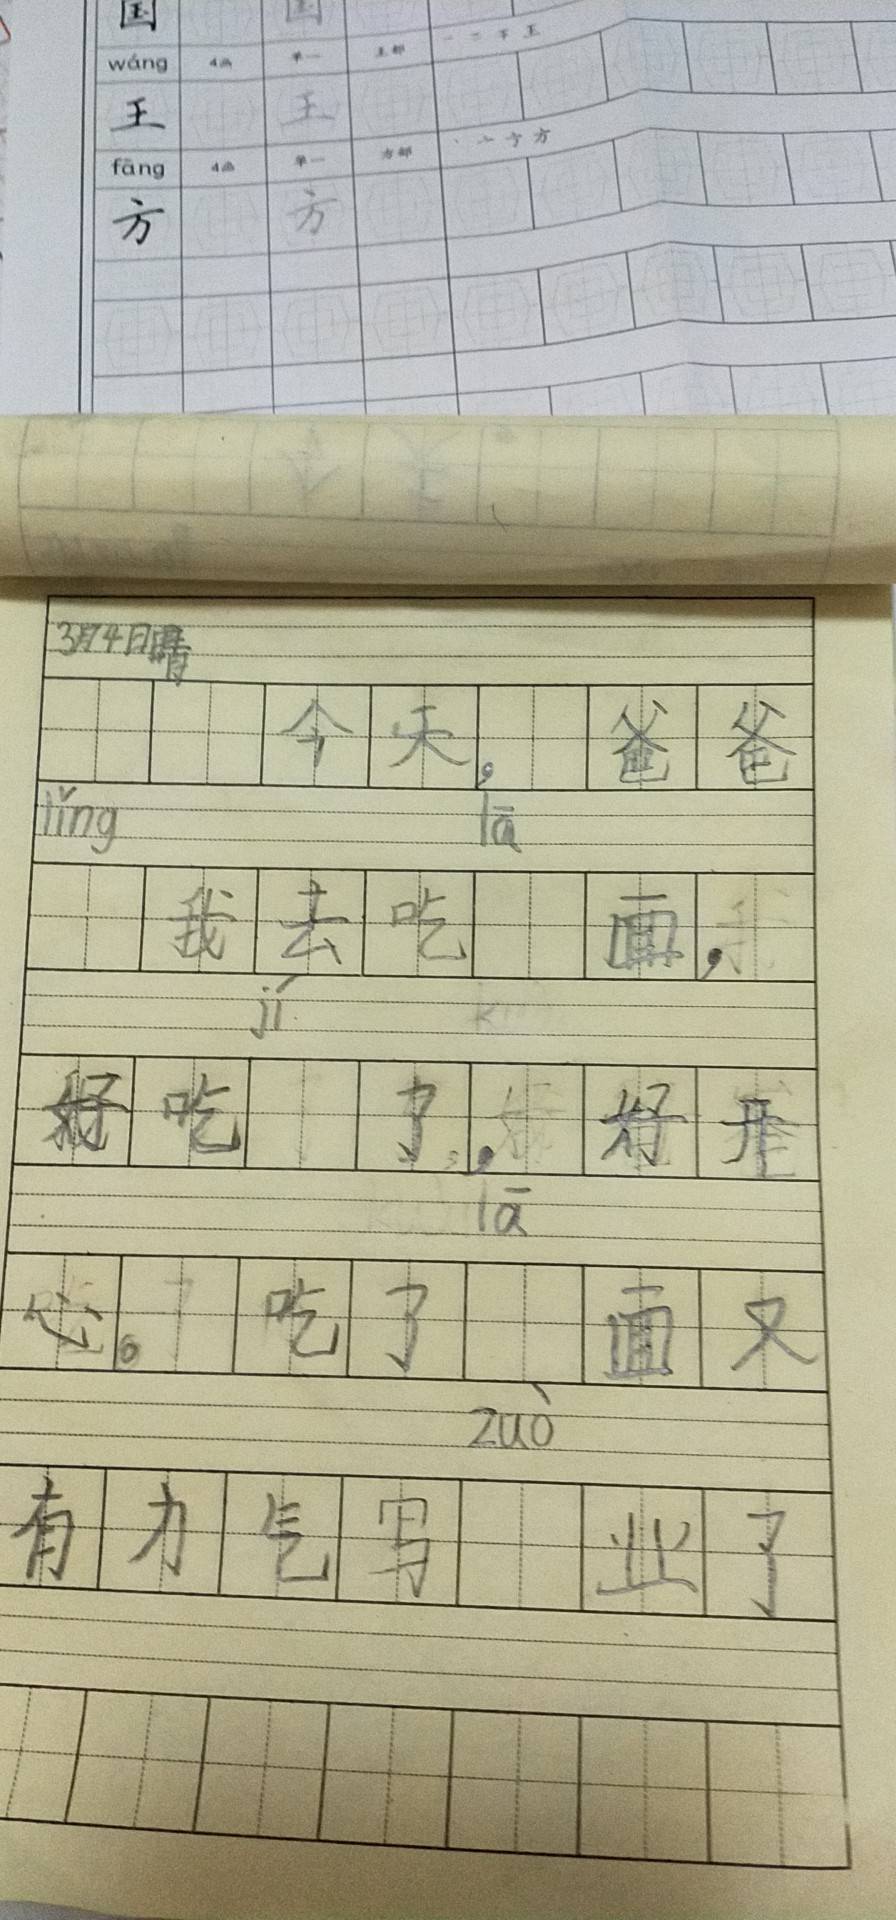 国 国
wáng 4画 单一 王部 一 二 千 王
王 王
fāng 4画 单一 方部 丶 亠 亍 方
方 方
3月4日晴
今天,爸爸
lǐng lā
我去吃 面,
jí
好吃 了,好开
lā
心。吃了 面又
zuò
有力气写 业了